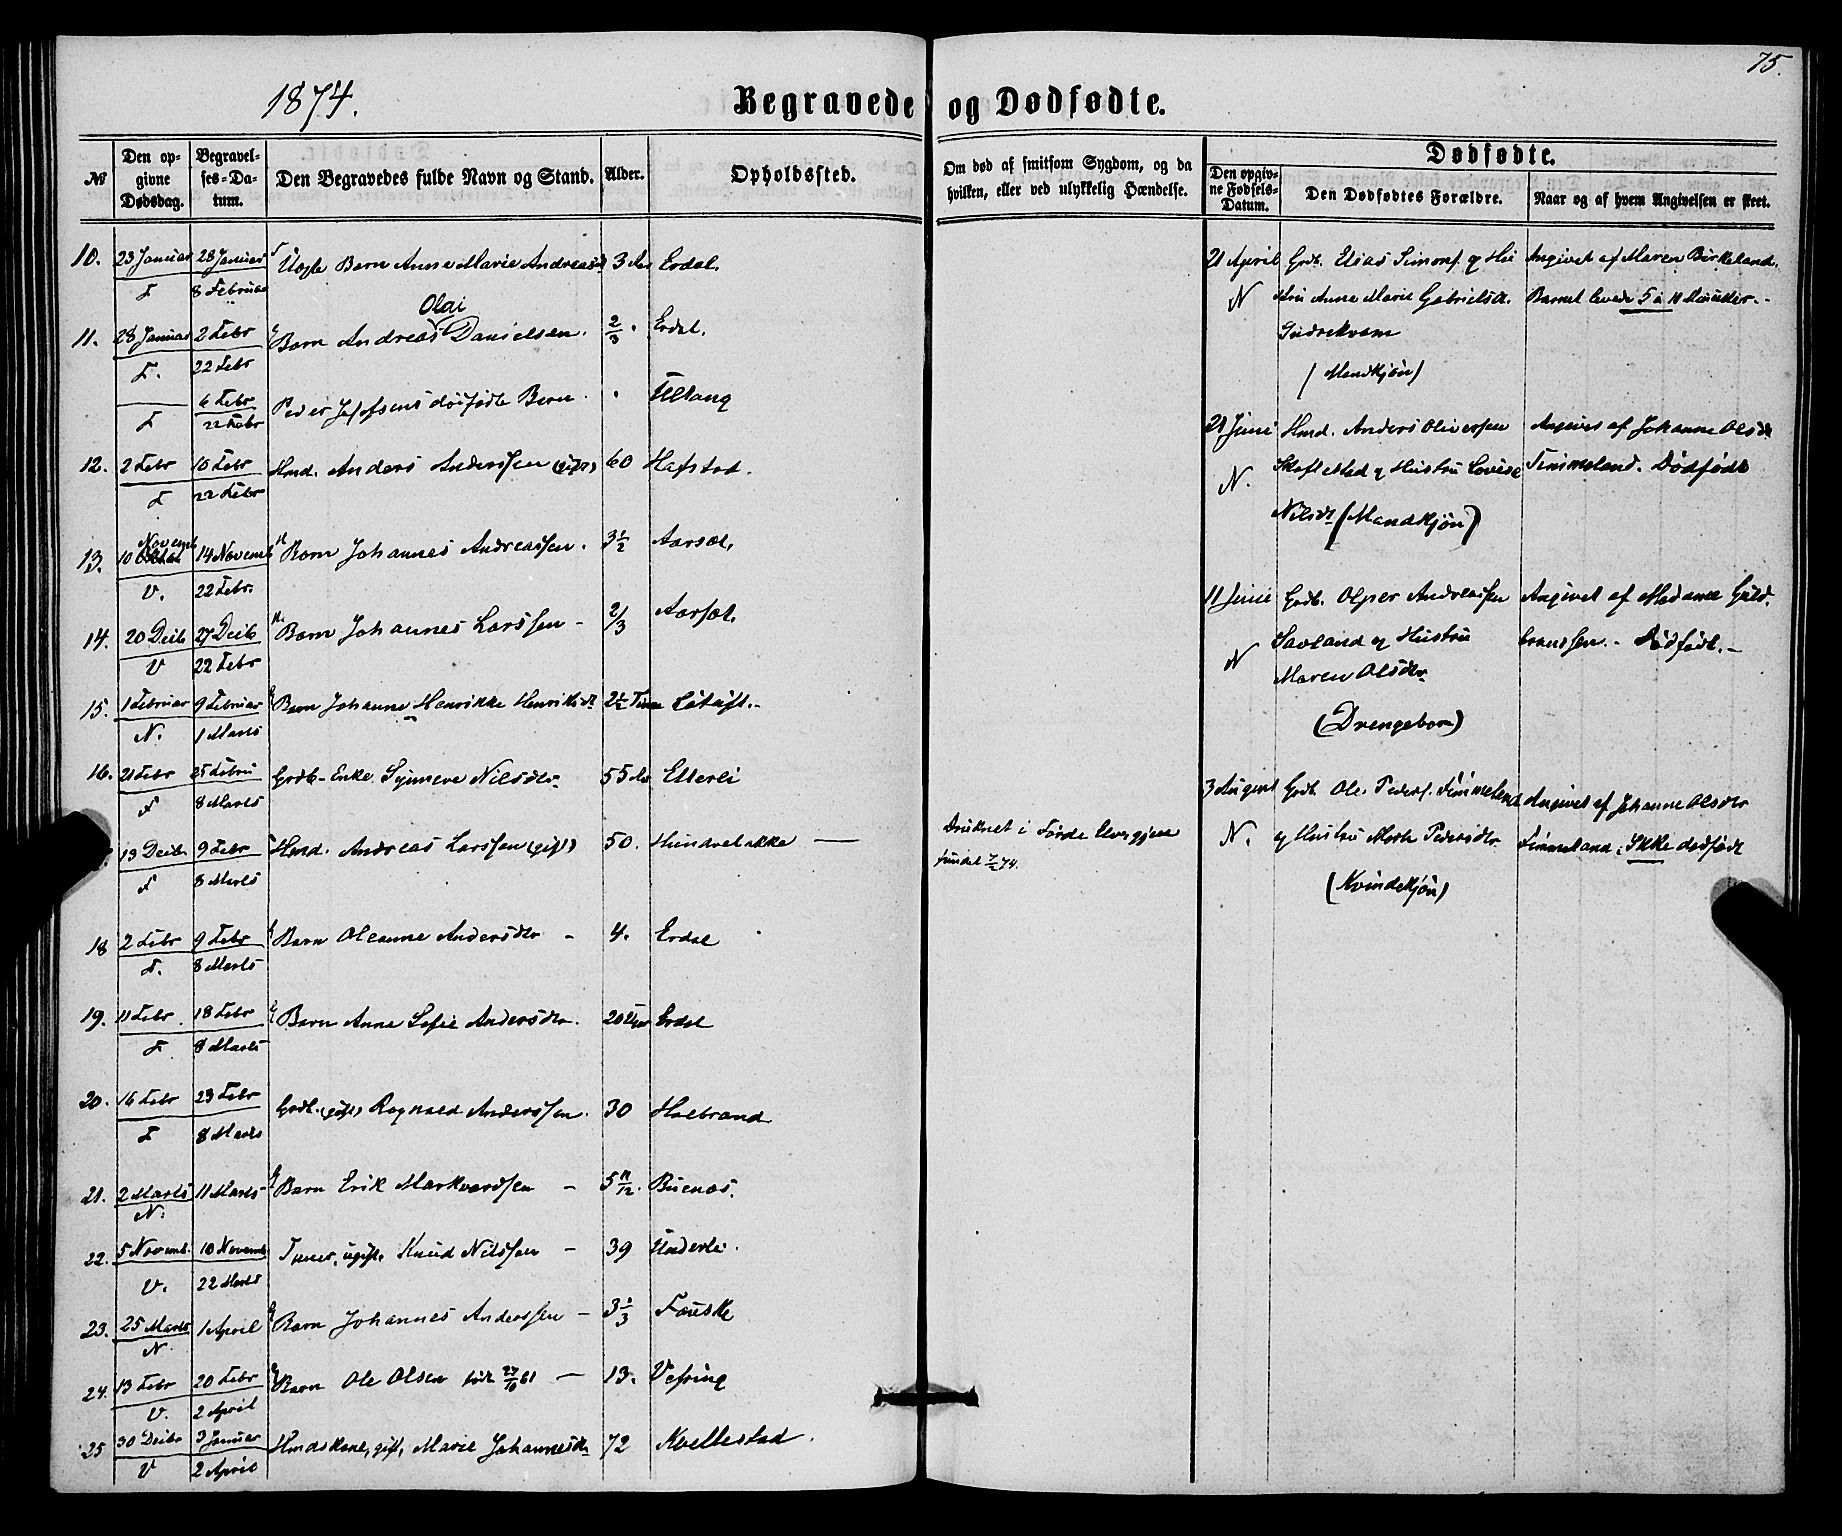 1874.
Begravede og Dødfødte.
75.
No
Den opgivne Dødsdag.
Begravelses-Datum.
Den Begravedes fulde Navn og Stand.
Alder.
Opholdssted.
Om død af smitsom Sygdom, og da hvilken, eller ved ulykkelig Hændelse.
Dødfødte.
Den opgivne Fødsels-Datum.
Den Dødfødtes Forældre.
Naar og af hvem Angivelsen er skeet.
10. 23 Januar 28 Januar Barn Anne Marie Andreasd 3 Erdal.
F 8 Februar
Olai
11. 28 Januar 2 Febr Barn Andreas Danielsen. 2/3. Erdal.
F. 22 Febr
6 Febr Peder dødfødte Barn
F 22 Febr
12. 2 Febr 10 Febr Hmd. Anders Anderssen (gift) 60 Hafstad.
F 22 Febr
Novemb
13. 10 14 Novemb Barn Johannes Andreassen. 3 1/2 Aarsæt.
V. 22 Febr.
14. 20 Decb 27 Decb Barn Johannes Larssen - 2/3 Aarsæt.
V 22 Febr
15. 1 Februar 9 Februar Barn Johanne Henrikke Henriksdt 2 1/2
N. 1 Marts
16. 21 Febr 25 Febru Grdb. Enke Synneve Nilsdtr 55 Etterli
F 8 Marts
13 Decbr 9 Febr Hmd. Andreas Larssen (gift) 50. Druknet i Førde
F 8 Marts fundet 7/2 74.
18 2 Febr 9 Febr Barn Oleanne Andersdtr - 4. Erdal
F. 8 Marts
19. 11 Febr 18 Febr Barn Anne Sofie Andersdtr. 20 Uger Erdal
F 8 Marts
20. 16 Febr 23 Febr Grdb. (gift) Ragnald Anderssen. 30 Halbrand
F 8 Marts
21. 2 Marts 11 Marts Barn Erik Markvardsen - 5 11/12. Buenæs.
N.
22. 5 Novemb. 10 Novemb ugift. Knud Nilssen - 39 Underli.
V. 22 Marts
23. 25 Marts 1 April Barn Johannes Anderssen - 3 1/3 Fauske
N
24. 13 Febr 20 Febr Barn Ole Olsen født 27/10 61 - 13. Vefring
V. 2 April
25 30 Decbr 3 Januar Hmdskone, gift, Marie Johannesdt 72 Kvellestad.
V 2 April
21 April Grdb. Elias Simons. og Hu Angivet af Maren Birkeland.
N stru Anne Marie Gabrielsdt. Barnet levede 5 à 10 Minuter.
Indrekvam
(Mandkjøn)
21 Juni Hmd. Anders Oliverssen Angivet af Johanne Olsdt
N. og Hustru Lovise Timmeland. Dødfødt
Nilsdt (Mandkjøn)
11 Juni Grdb. Andreassen Angivet af Madame Guld-
N Savland og Hustru brandsen. - Dødfødt. -
Maren Olsdtr
(Drengebarn)
3 August Grdb. Ole Peders. Timmeland Angivet af Johanne Olsdtr
N. og Hustru Marte Pedersdtr Timmeland. Ikke dødfødt
(Kvindekjøn)